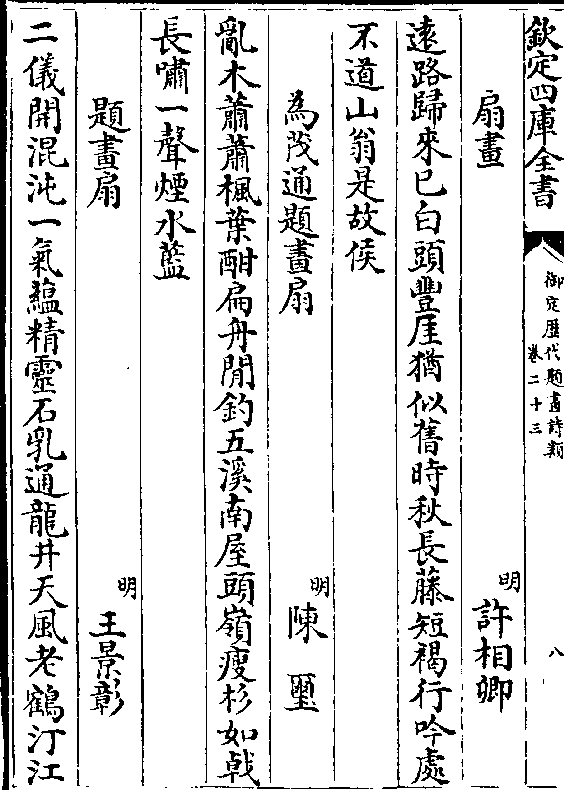 欽定四庫全書
御定歷代題畫詩類
卷二十三
八
扇畫
明
許相卿
遠路歸來已白頭豐厓猶似舊時秋長藤短褐行吟處
不道山翁是故侯
為茂通題畫扇
明
陳 璽
亂木蕭蕭楓葉酣扁舟閒釣五溪南屋頭嶺瘦杉如㦸
長嘯一聲煙水藍
題畫扇
明
王景彰
二儀開混沌一氣藴精靈石乳通龍井天風老鶴汀江